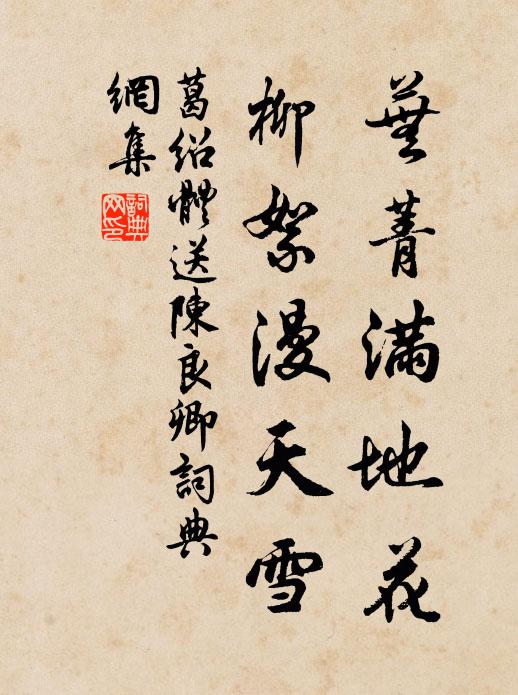 蕪菁滿地花
柳絮漫天雪
葛紹體送陳良卿詞典
網集
詞典
网印